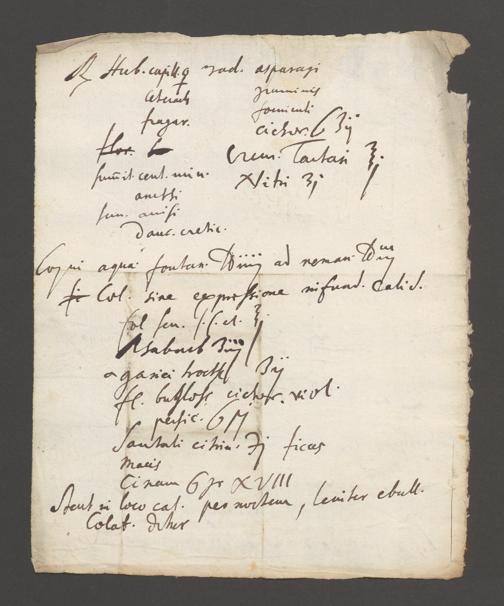 ℞ Herb. capill. ♀ rad. asparagi
Ceterach graminis
fragar. foeniculi
cichor. G ʒij
Crem. Tartari ℥j
summit. cent. min. Nitri ʒj
anethi
sem. anisi
Dauc. cretic.
Coq in aqua fontan. ℔iiij ad reman. ℔iij
Col. sine expressione infund. calid.
fol. sen. s. s. el. ℥j
Rhabarb ʒiij
agarici troch. ʒij
fl. bugloss cichor. viol.
persic. G Mj
Santali citrin. ℈j
macis
Cinam G gr XVIII
Stent in loco cal. per noctem, leniter ebull.
Colat. detur